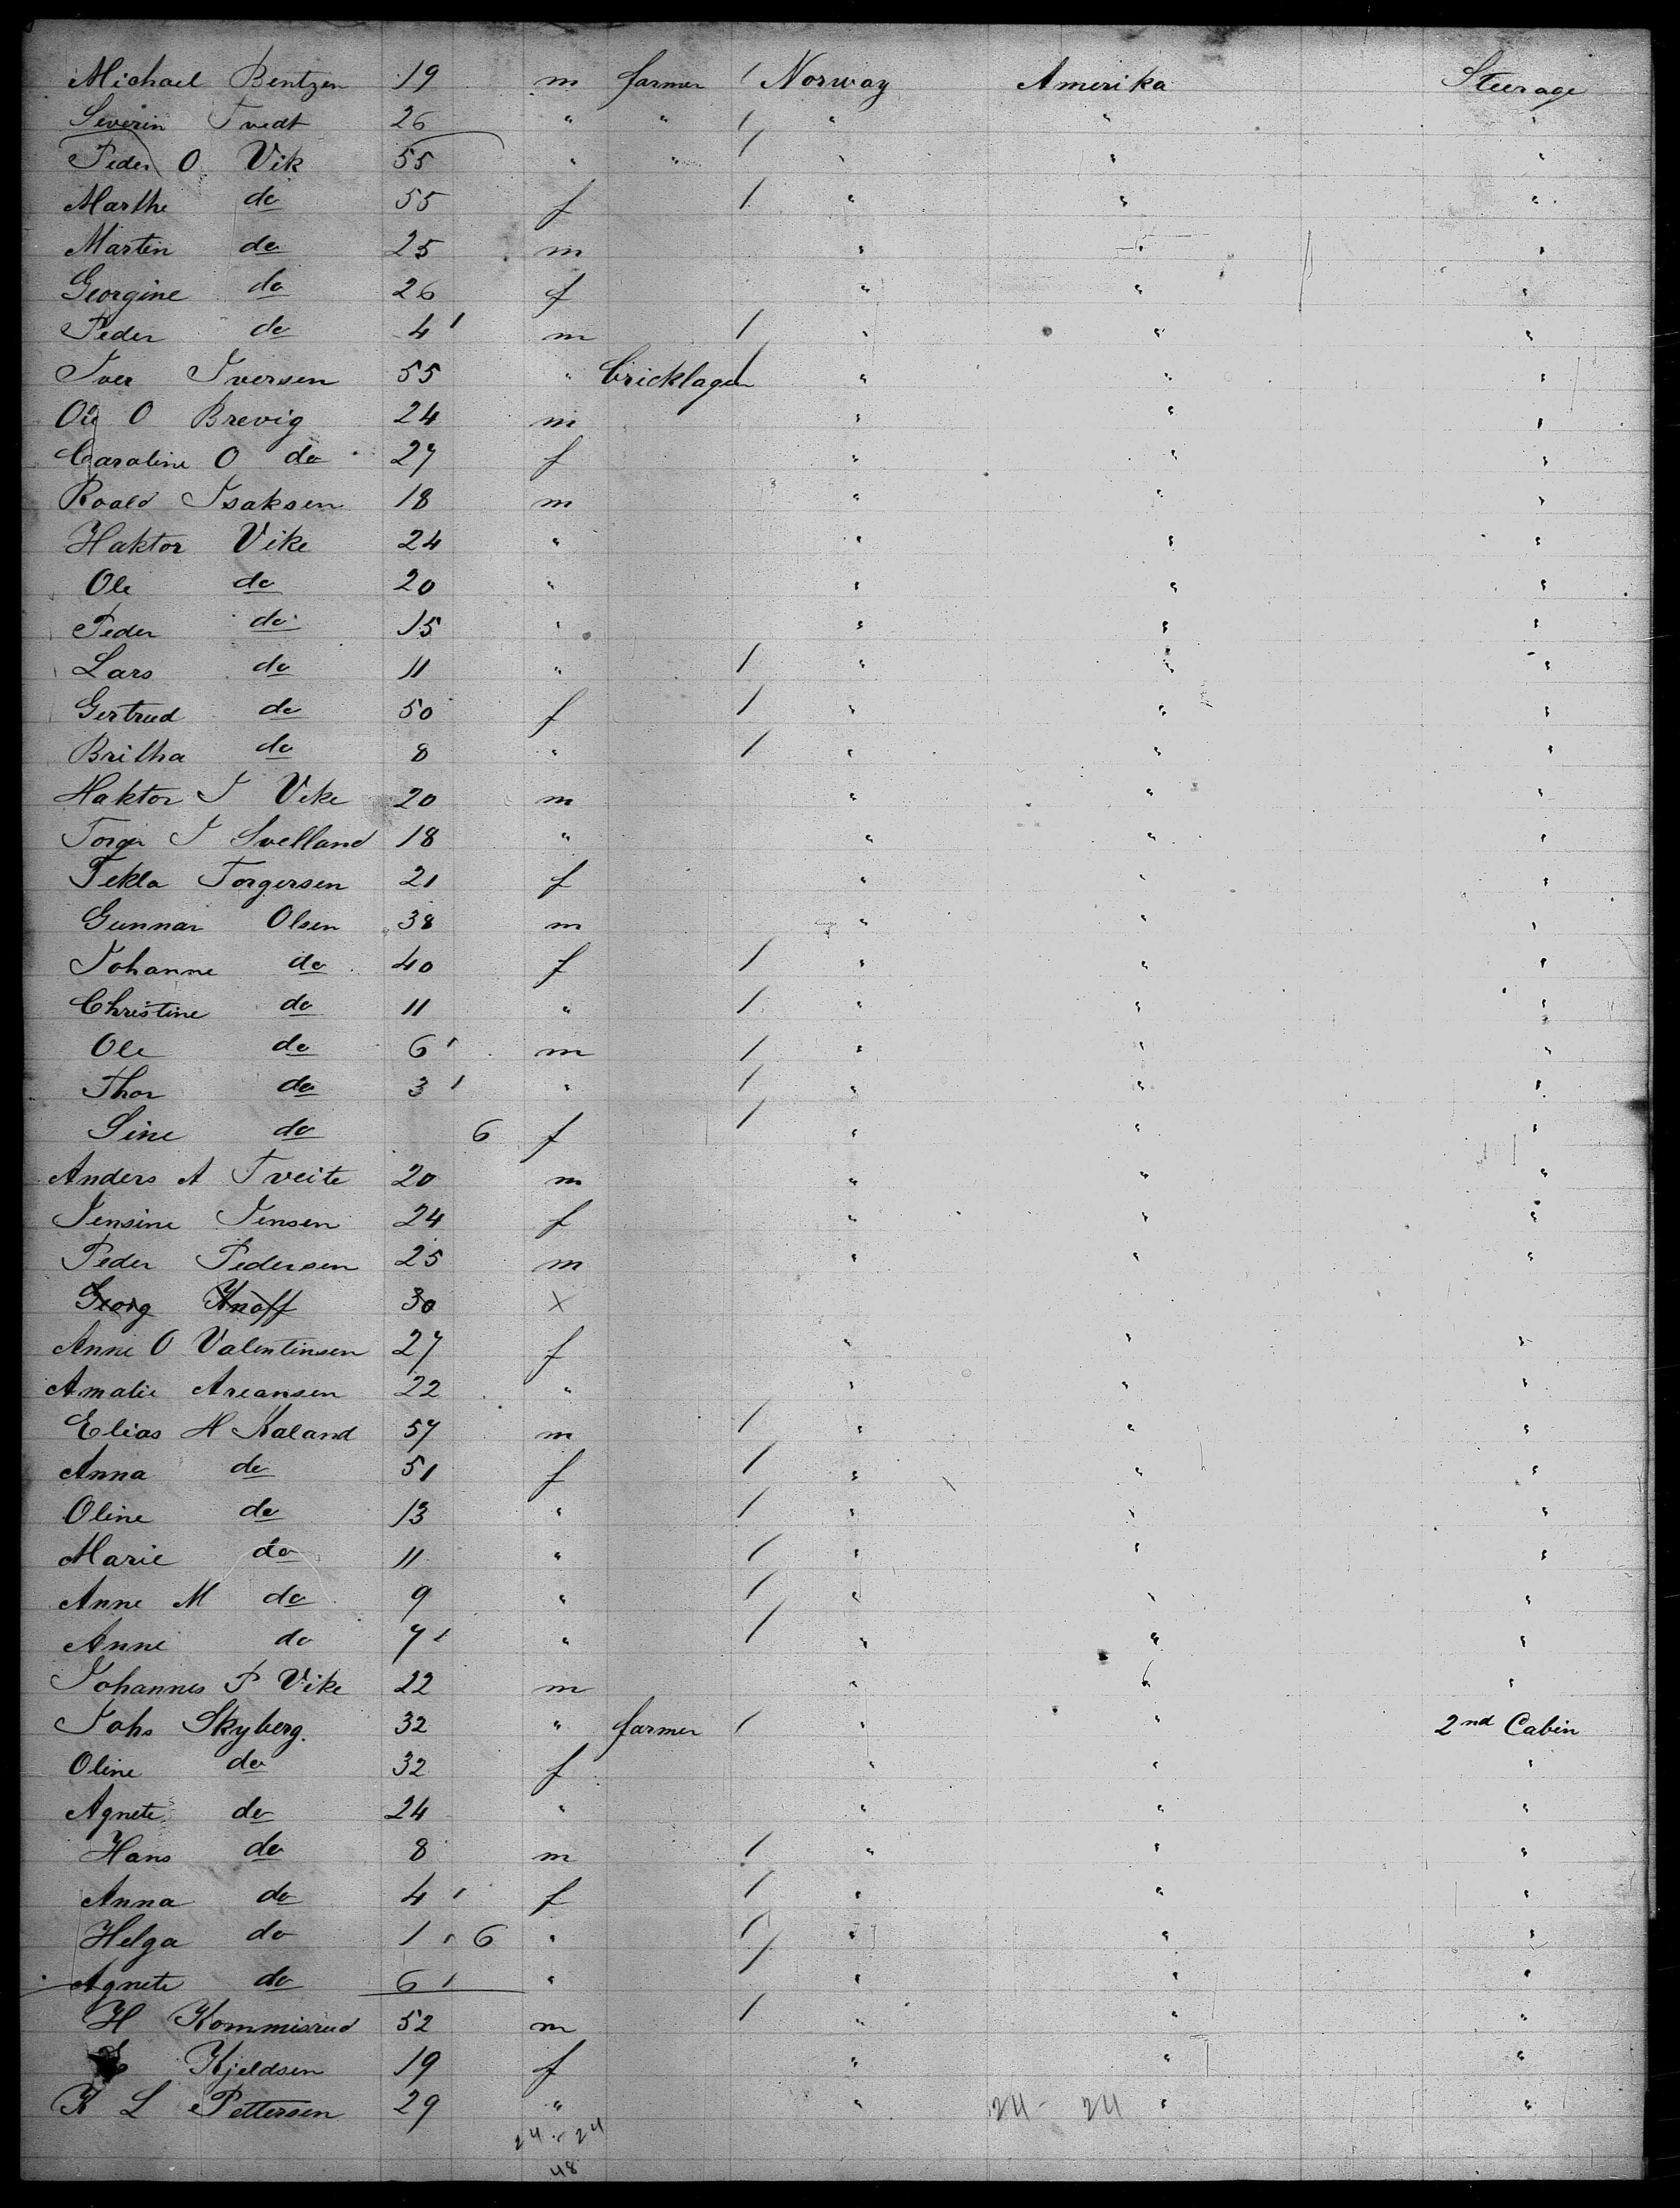 Michael Bentzen 19 m farmer / Norway Amerika Steerage
Severin Tvedt 26 " " / " " "
Peder O Vik 55 " " / " " "
Marthe do 55 f / " " "
Martin do 25 m " " "
Georgine do 26 f " " "
Peder do 4 ' m / " " "
Iver Iversen 55 " bricklager / " " "
Ole O Brevig 24 m " " "
Caroline O do 27 f " " "
Roald Isaksen 18 m " " "
Haktor Vike 24 " " " "
Ole do 20 " " " "
Peder do 15 " " " "
Lars do 11 " / " " "
Gertrud do 50 f / " " "
Britha do 8 " / " " "
Haktor I Vike 20 m " " "
Torger I Svelland 18 " " " "
Tekla Torgersen 21 f " " "
Gunnar Olsen 38 m " " "
Johanne do 40 f / " " "
Christine do 11 " / " " "
Ole do 6 ' m / " " "
Thor do 3 ' " / " " "
Sine do 6 f / " " "
Anders A Tveite 20 m " " "
Jensine Jensen 24 f " " "
Peder Pedersen 25 m " " "
Georg Knoff 30 x
Anne O Valentinsen 27 f " " "
Amalie Areansen 22 " " " "
Elias H Kaland 57 m / " " "
Anna do 51 f / " " "
Oline do 13 " / " " "
Marie do 11 " / " " "
Anne M do 9 " / " " "
Anne do 7 ' " / " " "
Johannes P Vike 22 m " " "
Johs Skyberg. 32 " farmer / " " 2nd Cabin
Oline do 32 f " " "
Agnete do 24 " " " "
Hans do 8 m / " " "
Anna do 4 ' f / " " "
Helga do 1 ' 6 " / " " "
Agnete do 6 ' " / " " "
H Kommisrud 52 m / " " "
Kjeldsen 19 f " " "
K L Pettersen 29 " " 24 - 24 " "
24 - 24
48